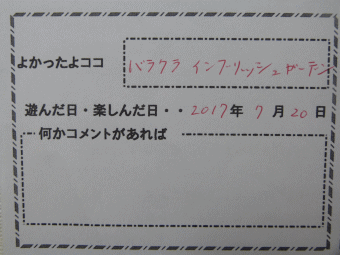 よかったよココ バラクラ イングリッシュガーデン
遊んだ日・楽しんだ日・・2017年 7月 20日
何かコメントがあれば